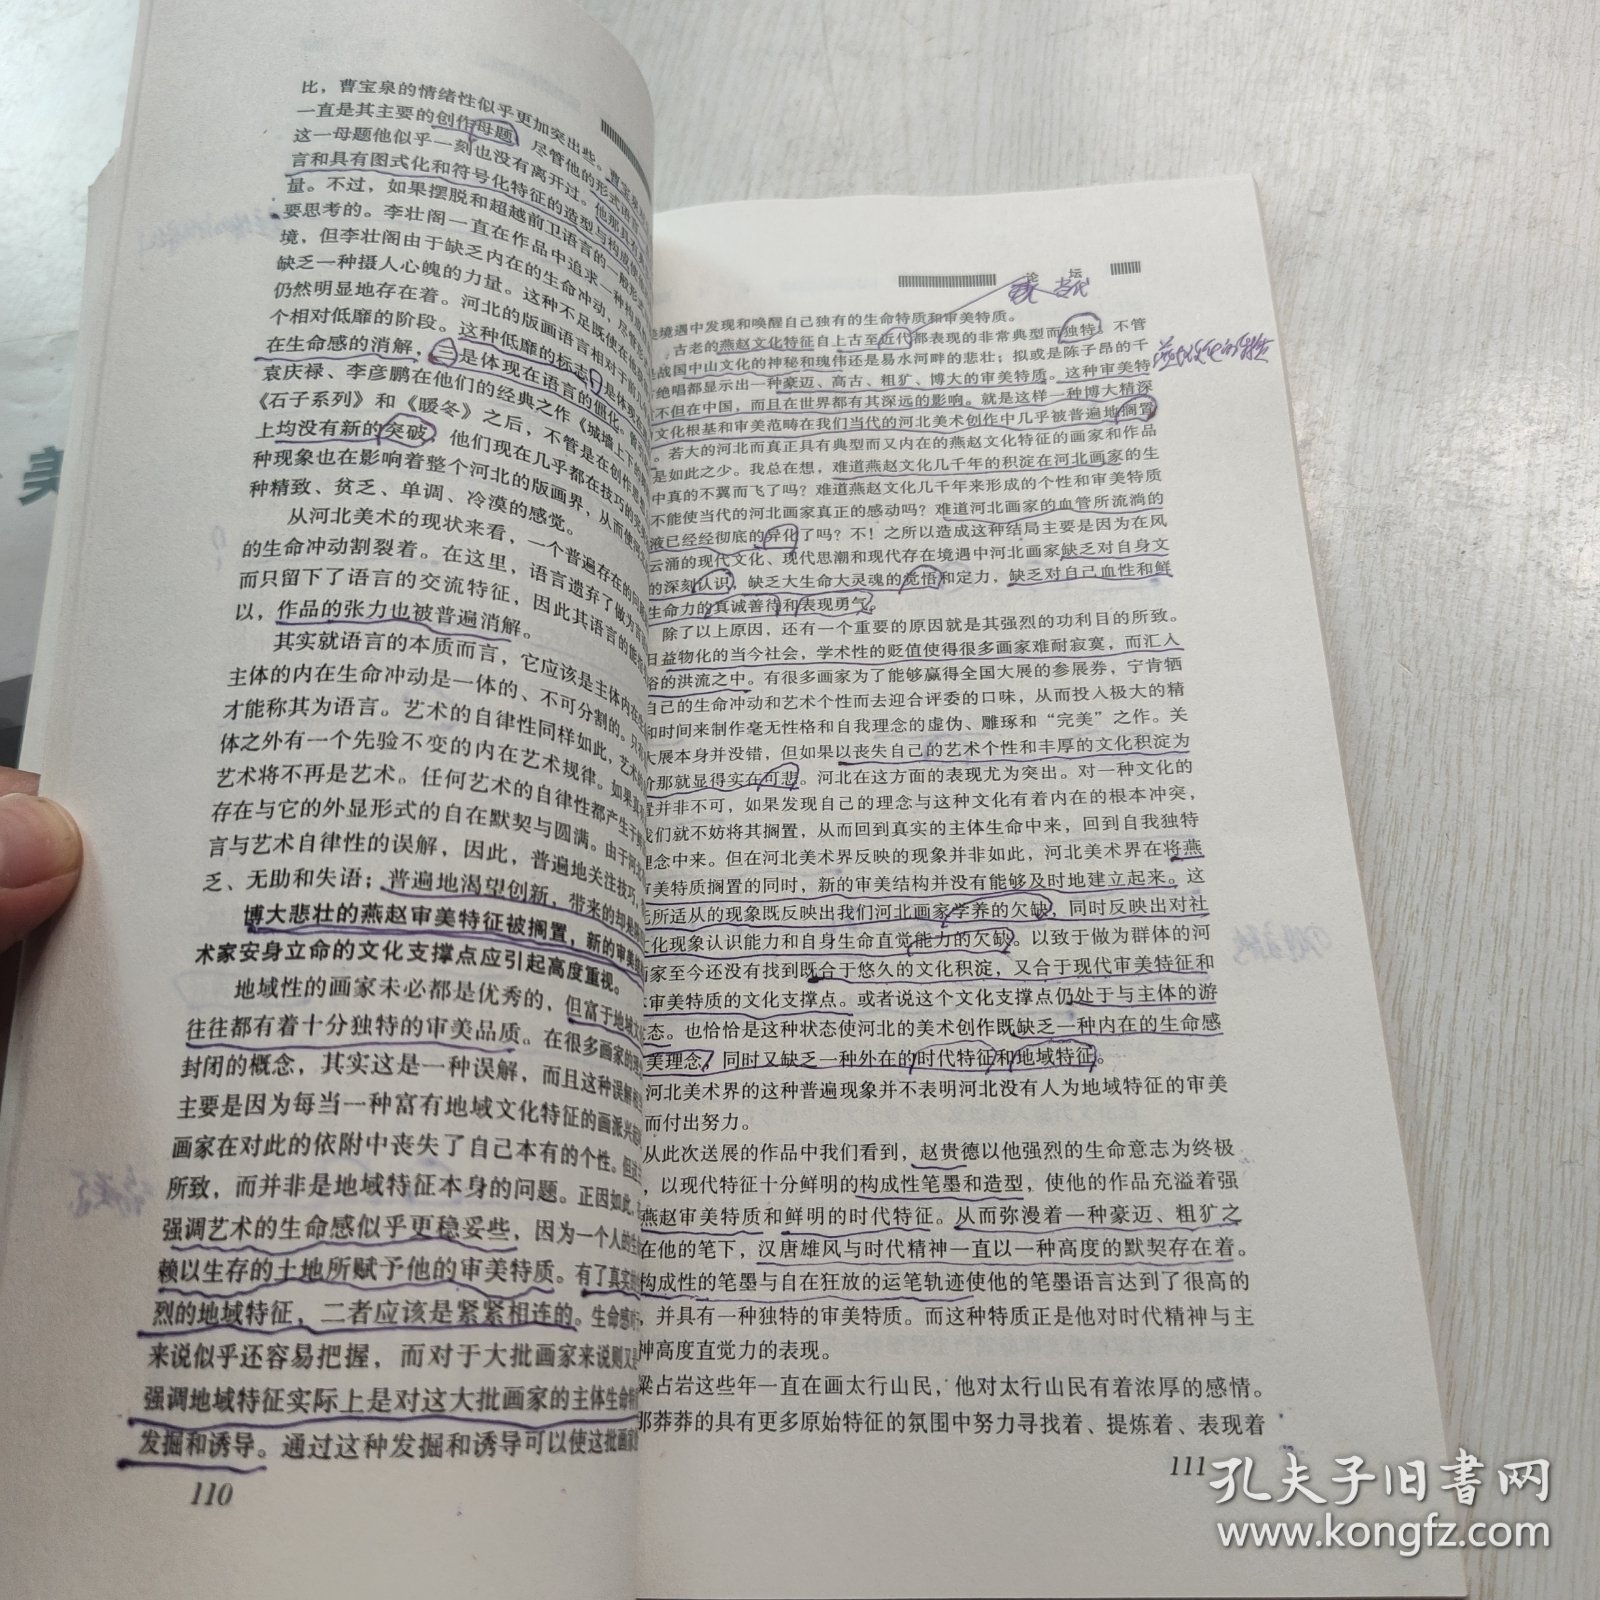 比，曹宝泉的情绪性似乎更加突出些。曹宝泉
一直是其主要的创作母题，尽管他的形式语言
这一母题他似乎一刻也没有离开过。他那具有
言和具有图式化和符号化特征的造型与构成使
量。不过，如果摆脱和超越前卫语言的一般形
要思考的。李壮阁一直在作品中追求一种构
境，但李壮阁由于缺乏内在的生命冲动，尽管
缺乏一种摄人心魄的力量。这种不足既使在他
仍然明显地存在着。河北的版画语言相对于前几
个相对低靡的阶段。这种低靡的标志，一是体现在
在生命感的消解，二是体现在语言的僵化。
袁庆禄、李彦鹏在他们的经典之作《城墙上下的
《石子系列》和《暖冬》之后，不管是在创作思
上均没有新的突破，他们现在几乎都在技巧的完
种现象也在影响着整个河北的版画界，从而使
种精致、贫乏、单调、冷漠的感觉。
从河北美术的现状来看，一个普遍存在的问
的生命冲动割裂着。在这里，语言遗弃了做为言
而只留下了语言的交流特征，因此其语言的能
以，作品的张力也被普遍消解。
其实就语言的本质而言，它应该是主体内在
主体的内在生命冲动是一体的、不可分割的。只有
才能称其为语言。艺术的自律性同样如此，艺术的
体之外有一个先验不变的内在艺术规律。如果真
艺术将不再是艺术。任何艺术的自律性都产生于
存在与它的外显形式的自在默契与圆满。由于河北
言与艺术自律性的误解，因此，普遍地关注技巧，
乏、无助和失语；普遍地渴望创新，带来的却是
博大悲壮的燕赵审美特征被搁置，新的审美
术家安身立命的文化支撑点应引起高度重视。
地域性的画家未必都是优秀的，但富于地域
往往都有着十分独特的审美品质。在很多画家的理
封闭的概念，其实这是一种误解，而且这种误解
主要是因为每当一种富有地域文化特征的画派兴起
画家在对此的依附中丧失了自己本有的个性。但这
所致，而并非是地域特征本身的问题。正因如此，
强调艺术的生命感似乎更稳妥些，因为一个人的生
赖以生存的土地所赋予他的审美特质。有了真实
烈的地域特征，二者应该是紧紧相连的。生命感对
来说似乎还容易把握，而对于大批画家来说则又
强调地域特征实际上是对这大批画家的主体生命
发掘和诱导。通过这种发掘和诱导可以使这批画家
110
论 坛
境遇中发现和唤醒自己独有的生命特质和审美特质。
古老的燕赵文化特征自上古至近代都表现的非常典型而独特，不管
是战国中山文化的神秘和瑰伟还是易水河畔的悲壮；拟或是陈子昂的千
绝唱都显示出一种豪迈、高古、粗犷、博大的审美特质。这种审美特
不但在中国，而且在世界都有其深远的影响。就是这样一种博大精深
文化根基和审美范畴在我们当代的河北美术创作中几乎被普遍地搁置
。若大的河北而真正具有典型而又内在的燕赵文化特征的画家和作品
是如此之少。我总在想，难道燕赵文化几千年的积淀在河北画家的生
中真的不翼而飞了吗？难道燕赵文化几千年来形成的个性和审美特质
不能使当代的河北画家真正的感动吗？难道河北画家的血管所流淌的
液已经经彻底的异化了吗？不！之所以造成这种结局主要是因为在风
云涌的现代文化、现代思潮和现代存在境遇中河北画家缺乏对自身文
的深刻认识，缺乏大生命大灵魂的觉悟和定力，缺乏对自己血性和鲜
生命力的真诚善待和表现勇气。
除了以上原因，还有一个重要的原因就是其强烈的功利目的所致。
日益物化的当今社会，学术性的贬值使得很多画家难耐寂寞，而汇入
俗的洪流之中。有很多画家为了能够赢得全国大展的参展券，宁肯牺
自己的生命冲动和艺术个性而去迎合评委的口味，从而投入极大的精
和时间来制作毫无性格和自我理念的虚伪、雕琢和“完美”之作。关
大展本身并没错，但如果以丧失自己的艺术个性和丰厚的文化积淀为
价那就显得实在可悲。河北在这方面的表现尤为突出。对一种文化的
置并非不可，如果发现自己的理念与这种文化有着内在的根本冲突，
我们就不妨将其搁置，从而回到真实的主体生命中来，回到自我独特
理念中来。但在河北美术界反映的现象并非如此，河北美术界在将燕
审美特质搁置的同时，新的审美结构并没有能够及时地建立起来。这
无所适从的现象既反映出我们河北画家学养的欠缺，同时反映出对社
文化现象认识能力和自身生命直觉能力的欠缺。以致于做为群体的河
画家至今还没有找到既合于悠久的文化积淀，又合于现代审美特征和
审美特质的文化支撑点。或者说这个文化支撑点仍处于与主体的游
状态。也恰恰是这种状态使河北的美术创作既缺乏一种内在的生命感
美理念，同时又缺乏一种外在的时代特征和地域特征。
河北美术界的这种普遍现象并不表明河北没有人为地域特征的审美
而付出努力。
从此次送展的作品中我们看到，赵贵德以他强烈的生命意志为终极
，以现代特征十分鲜明的构成性笔墨和造型，使他的作品充溢着强
燕赵审美特质和鲜明的时代特征。从而弥漫着一种豪迈、粗犷之
在他的笔下，汉唐雄风与时代精神一直以一种高度的默契存在着。
构成性的笔墨与自在狂放的运笔轨迹使他的笔墨语言达到了很高的
，并具有一种独特的审美特质。而这种特质正是他对时代精神与主
神高度直觉力的表现。
梁占岩这些年一直在画太行山民，他对太行山民有着浓厚的感情。
那莽莽的具有更多原始特征的氛围中努力寻找着、提炼着、表现着
111
孔夫子旧书网
www.kongfz.com